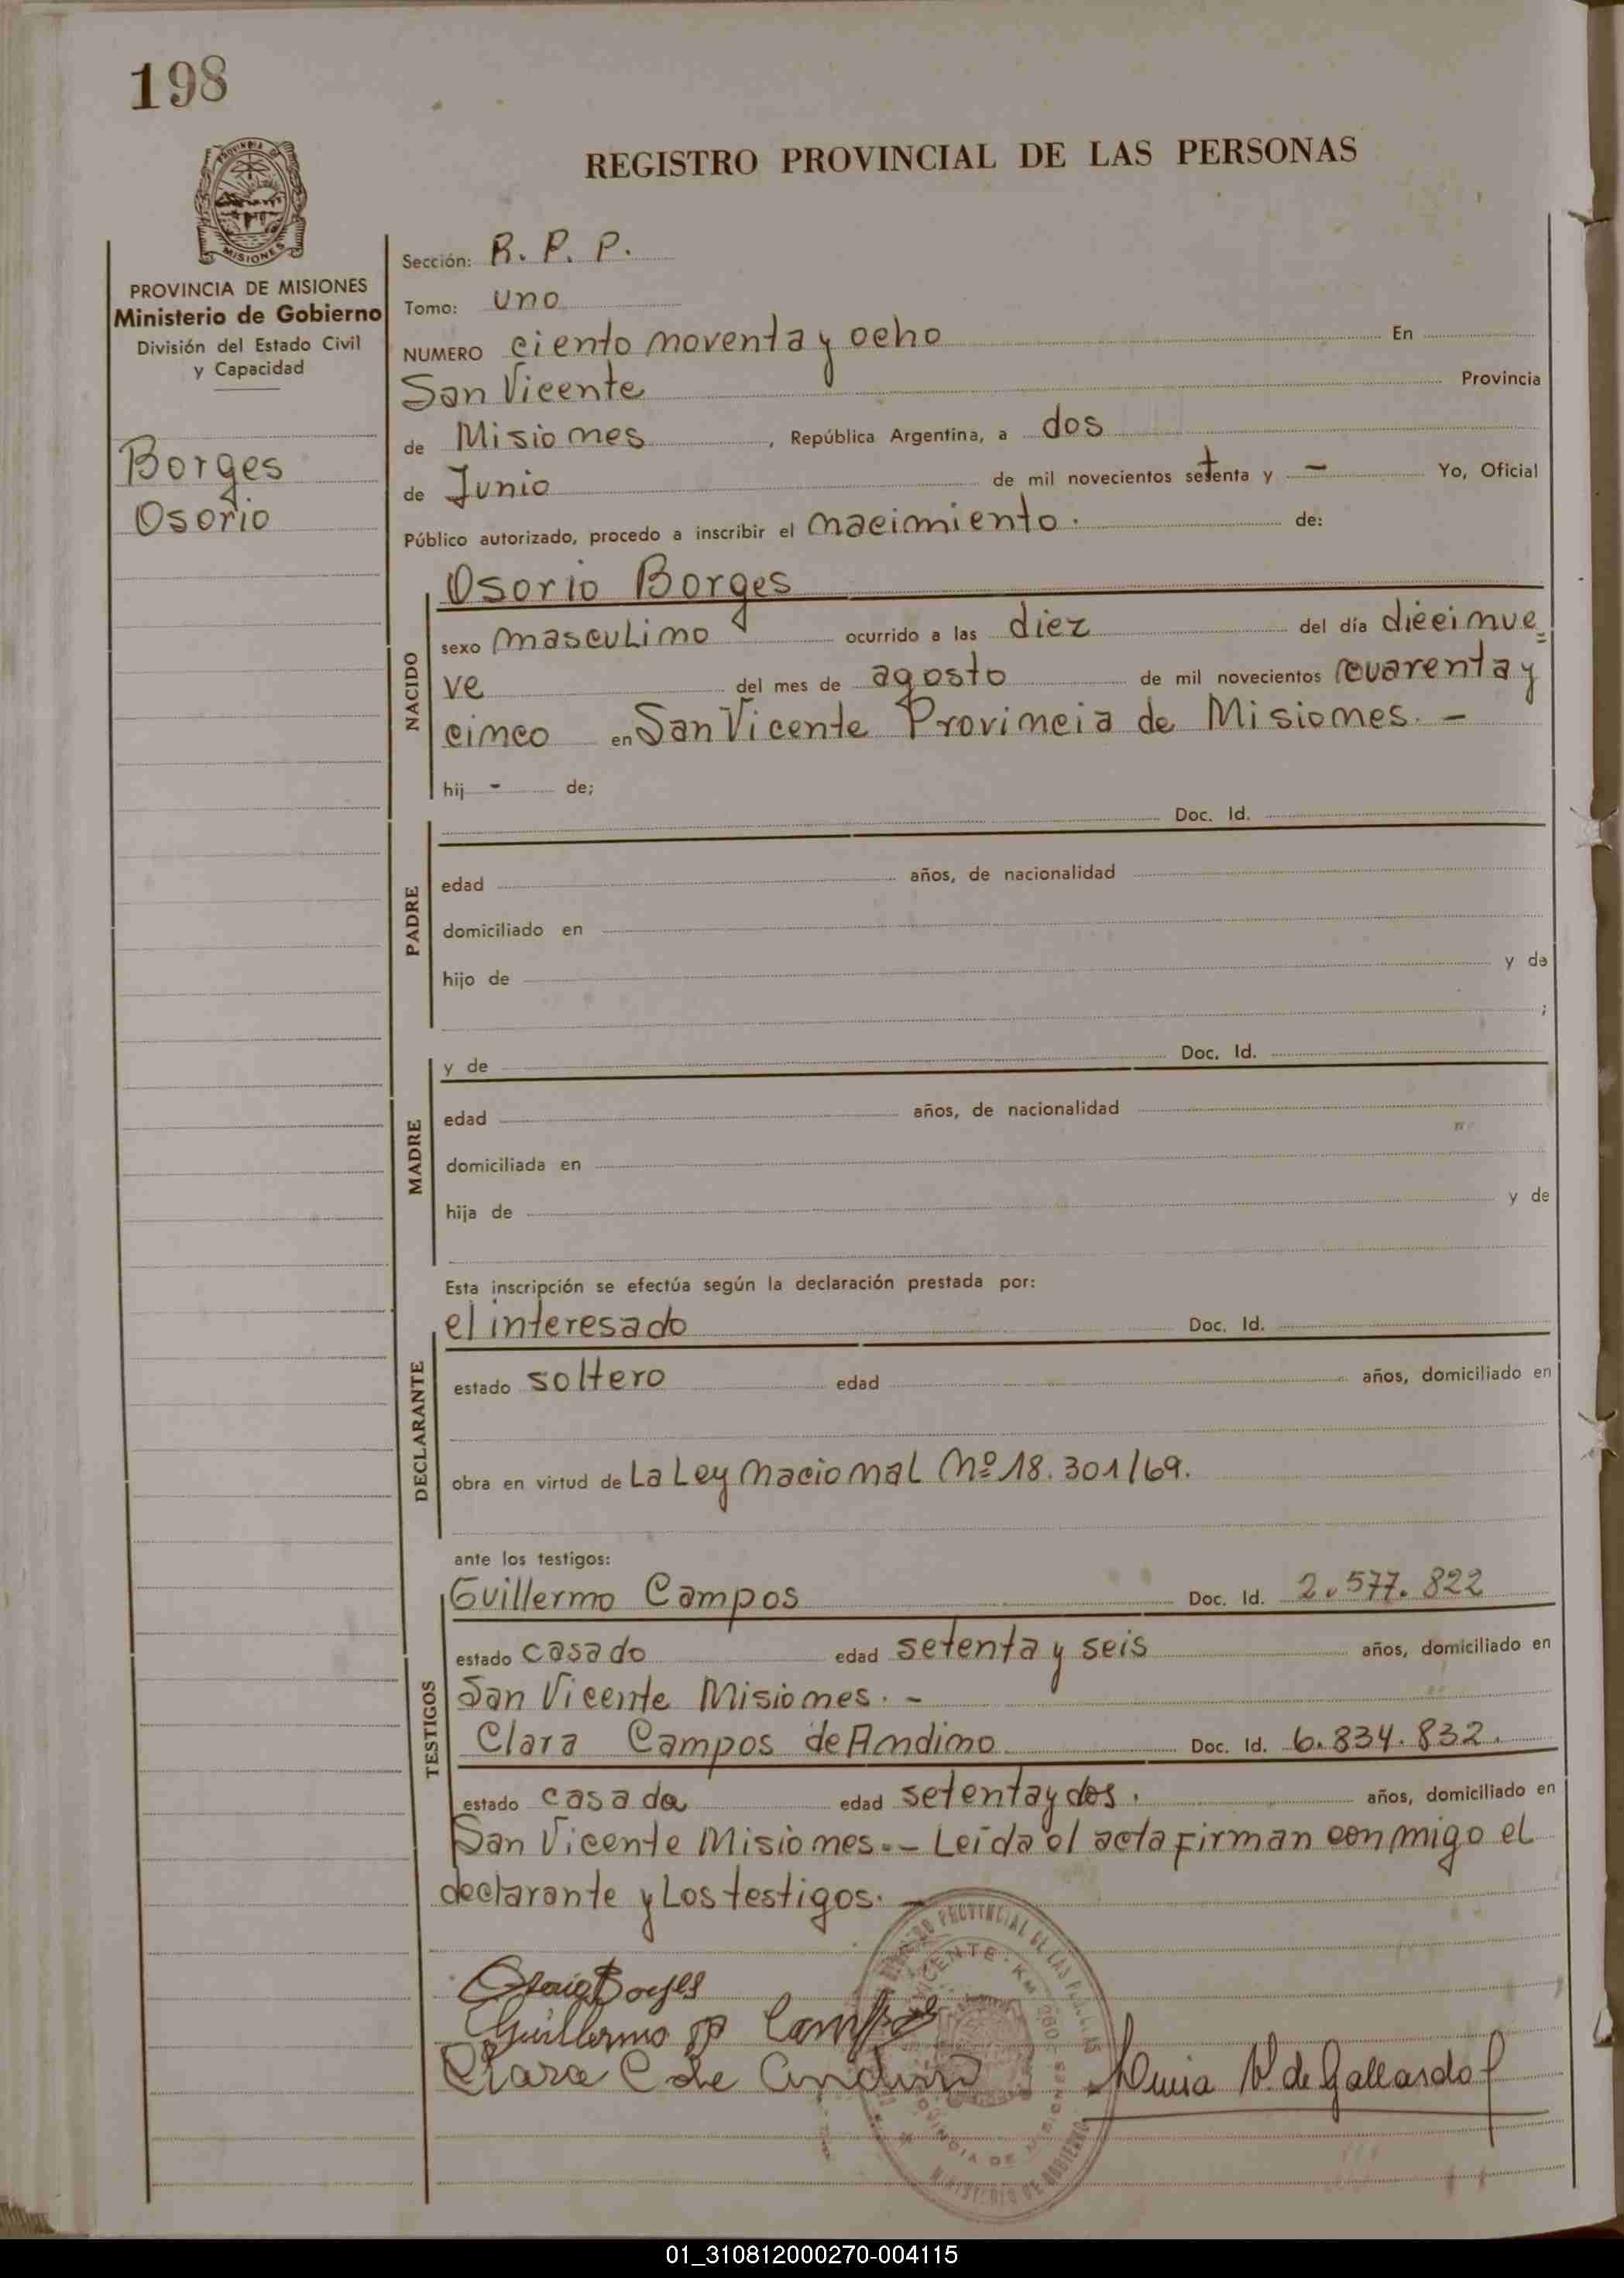 198
PROVINCIA DE
MISIONES
REGISTRO PROVINCIAL DE LAS PERSONAS
PROVINCIA DE MISIONES
Ministerio de Gobierno
División del Estado Civil
y Capacidad
Borges
Osorio
Sección: R. P. P.
Tomo: uno
NUMERO ciento noventa y ocho En
San Vicente Provincia
de Misiones, República Argentina, a dos
de Junio de mil novecientos setenta y - Yo, Oficial
Público autorizado, procedo a inscribir el nacimiento. de:
NACIDO
Osorio Borges
sexo masculino ocurrido a las diez del día diecinue=
ve del mes de agosto de mil novecientos cuarenta y
cinco en San Vicente Provincia de Misiones. -
hij - de;
PADRE
Doc. Id.
edad años, de nacionalidad
domiciliado en
hijo de y de
;
MADRE
y de Doc. Id.
edad años, de nacionalidad
domiciliada en
hija de y de
Esta inscripción se efectúa según la declaración prestada por:
DECLARANTE
el interesado Doc. Id.
estado soltero edad años, domiciliado en
obra en virtud de La Ley Nacional Nº 18.301/69.
ante los testigos:
TESTIGOS
Guillermo Campos Doc. Id. 2.577.822
estado casado edad setenta y seis años, domiciliado en
San Vicente Misiones. -
Clara Campos de Andino Doc. Id. 6.834.832.
estado casada edad setenta y dos. años, domiciliado en
San Vicente Misiones.- Leída el acta firman conmigo el
declarante y Los testigos. -
Osorio Borges
Guillermo Campos
Clara C de Andino
V. de Gallardo
PROVINCIAL DE LAS
VICENTE - Km 260 - MISIONES
MINISTERIO DE GOBIERNO
01_310812000270-004115